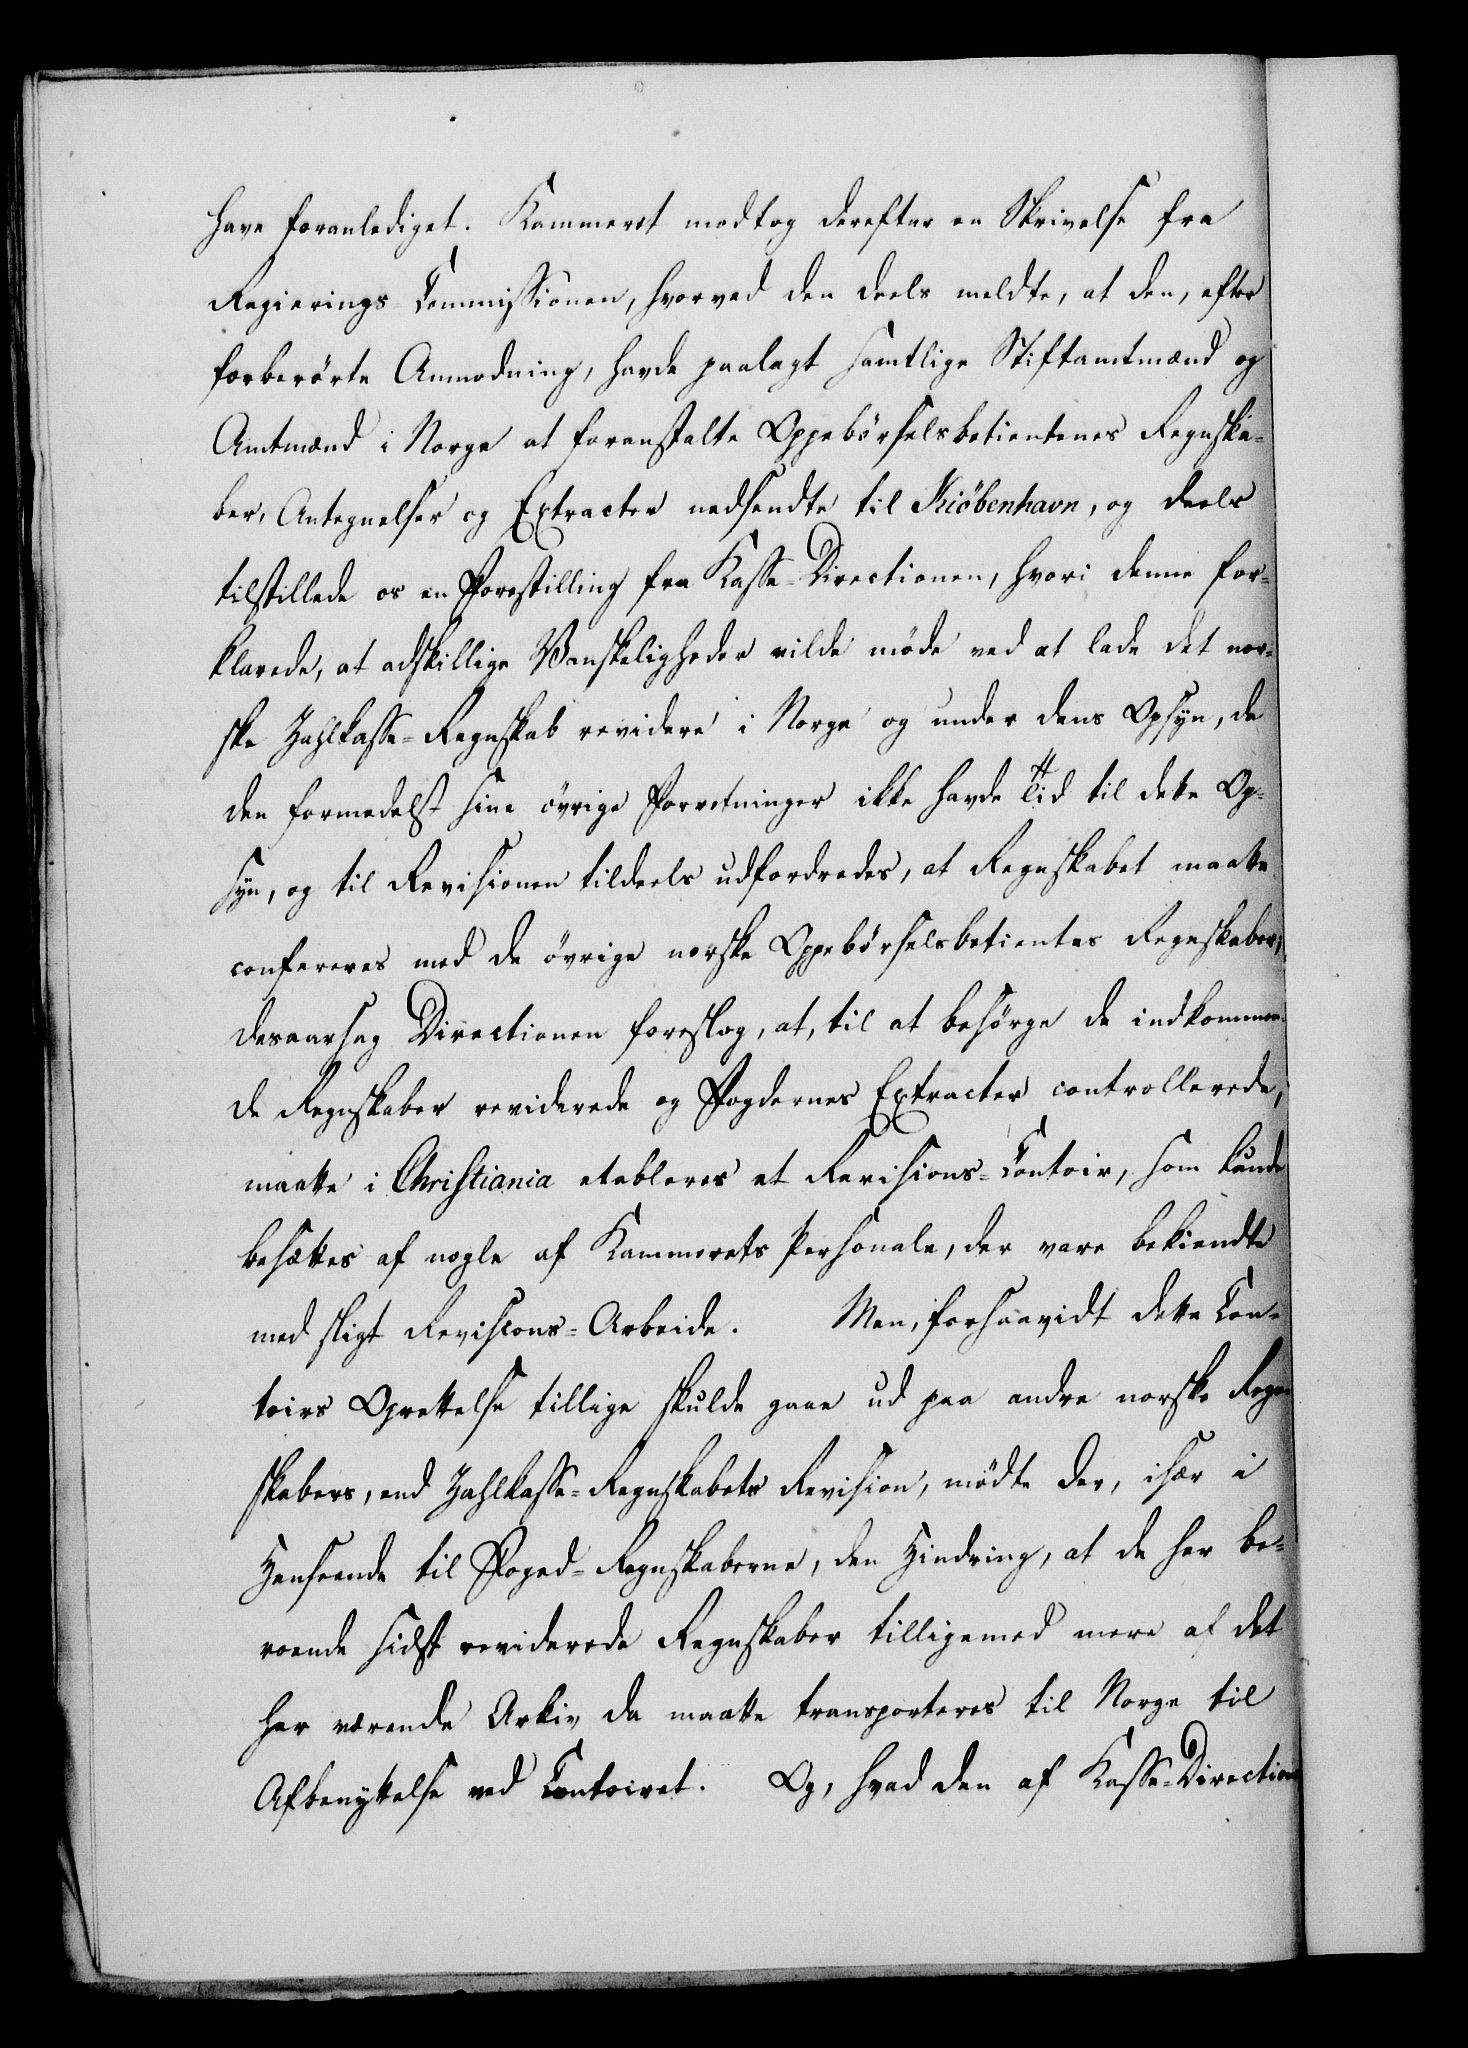 have foranlediget. Kammeret modtog derefter en Skrivelse fra
Regierings-Commissionen, hvorved den deels meldte, at den, efter
forberörte Anmodning, havde paalagt samtlige Stiftamtmænd og
Amtmænd i Norge at foranstalte Oppebörselsbetientenes Regnska-
ber, Antegnelser og Extracter nedsendte til Kiöbenhavn, og deels
tilstillede os en Forestilling fra Kasse-Directionen, hvori denne for-
klarede, at adskillige Vanskeligheder vilde möde ved at lade det nor-
ske Zahlkasse-Regnskab revidere i Norge og under dens Opsyn, da
den formedelst sine övrige Forretninger ikke havde Tid til dette Op-
syn, og til Revisionen tildeels udfordredes, at Regnskabet maatte
confereres med de övrige norske Oppebörselsbetientes Regnskaber,
desaarsag Directionen foreslog, at, til at besörge de indkommen-
de Regnskaber reviderede og Fogdernes Extracter controllerede,
maatte i Christiania etableres et Revisions-Contoir, som kunde
besættes af nogle af Kammerets Personale, der vare bekiendte
med sligt Revisions-Arbeide. Men, forsaavidt dette Con-
toirs Oprettelse tillige skulde gaae ud paa andre norske Regn-
skabers, end Zahlkasse-Regnskabets Revision, mödte der, især i
Henseende til Foged-Regnskaberne, den Hindring, at de her be-
roende sidst reviderede Regnskaber tilligemed mere af det
her værende Arkiv da maatte transporteres til Norge til
Afbenyttelse ved Contoiret. Og, hvad den af Kasse-Direction